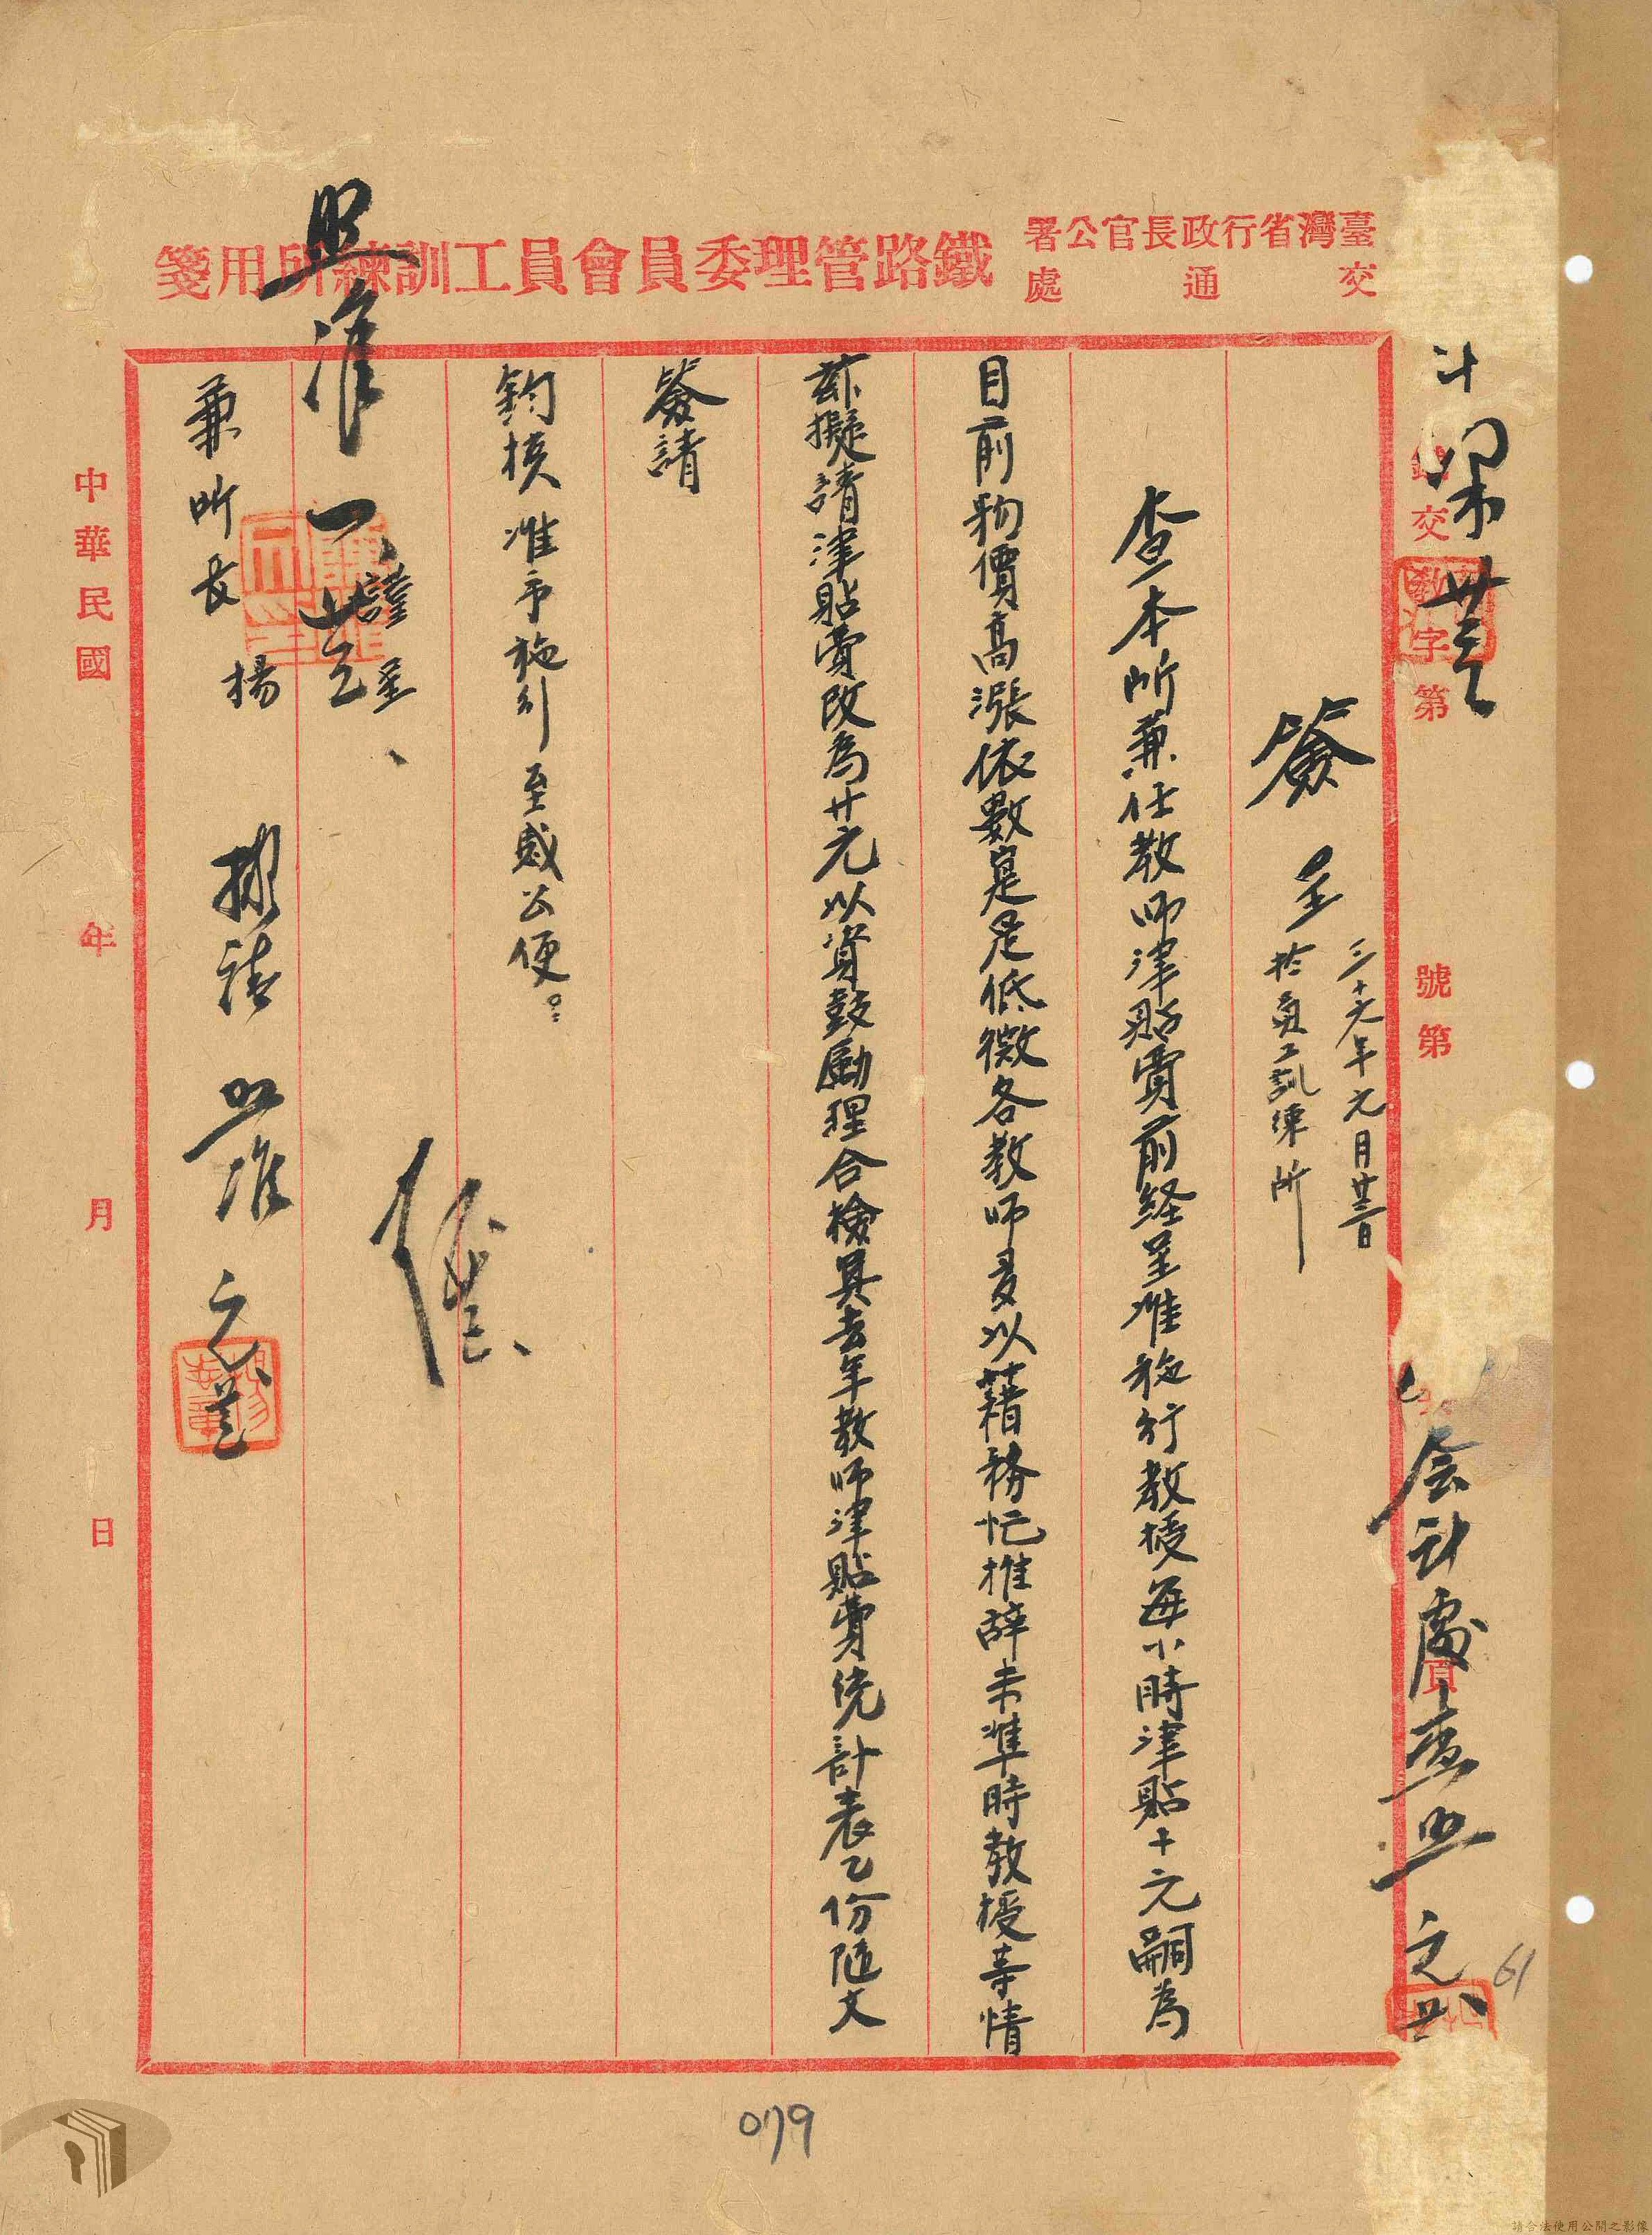 臺灣省行政長官公署
交通處
鐵路管理委員會員工訓練所用箋
交教字第
號第
頁
簽呈
三十六年元月廿三日
於員工訓練所
查本所兼任教師津貼費前経呈准施行教授每小時津貼十元嗣為
目前物價高漲依數寔是低微各教師多以藉務忙推辞未準時教授等情
茲擬請津貼費改為廿元以資鼓勵理合檢具去年教師津貼費統計表乙份隨文
簽請
鈞核准予施行至感公便。
謹呈
兼所長 楊
擬請照准
照准
会計處
中華民國 年 月 日
61
079
請合法使用公開之影像